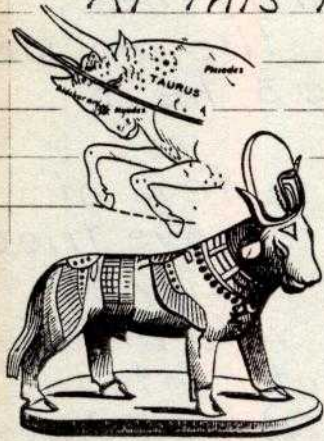 AT THIS
TAURUS
Pleiades
Aldebaran Hyades